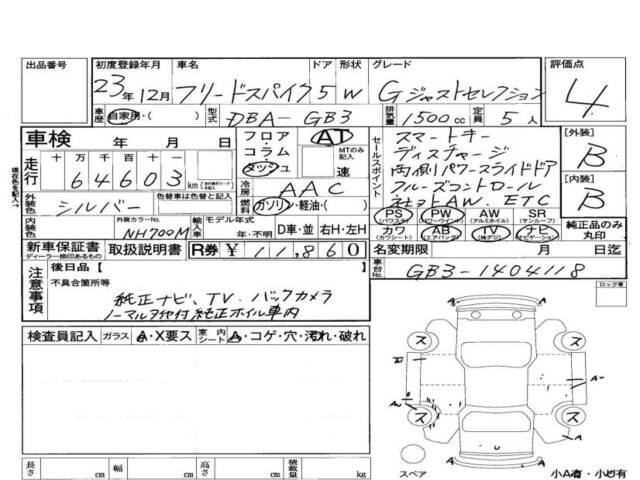 出品番号 初度登録年月 車名 ドア 形状 グレード 評価点
23年12月 フリードスパイク 5 W Gジャストセレクション 4
車歴 自家用・( ) 型式 DBA-GB3 排気量 1500cc 定員 5人
車検 年 月 日 フロア・コラム・ダッシュ AT MTのみ記入 速
走行 十万 万 千 百 十 一
64603 km
冷房 AAC
外装色 シルバー 色替車は色替と記入 燃料 ガソリン・軽油・( )
内装色 外装カラーNo. NH700M 輸入車 モデル年式 年・不明 D車・並 右H・左H
セールスポイント スマートキー
ディスチャージ
両側パワースライドドア
クルーズコントロール
社ヨトAW. ETC
PS PW AW SR
(パワステ) (パワーウィンド) (アルミホイル) (サンルーフ)
カワ AB TV ナビ
(カワシート) (エアバッグ) (地デジ) (ナビゲーション)
[外装] B
[内装] B
純正品のみ丸印
新車保証書 取扱説明書 R券 ¥11,860
ディーラー捺印あるもの
名変期限 月 日迄
車台No. GB3-1404118
注意事項 後日品 [ ]
不具合箇所等
純正ナビ、TV. バックカメラ
ノーマルタイヤ付純正ホイル車内
検査員記入 ガラス A・X要ス 室内シート A・コゲ・穴・汚れ・破れ
ロック車
ス ス
ス ス
スペア
小A有・小U有
長さ cm 幅 cm 高さ cm 積載量 kg
現在色を記入→